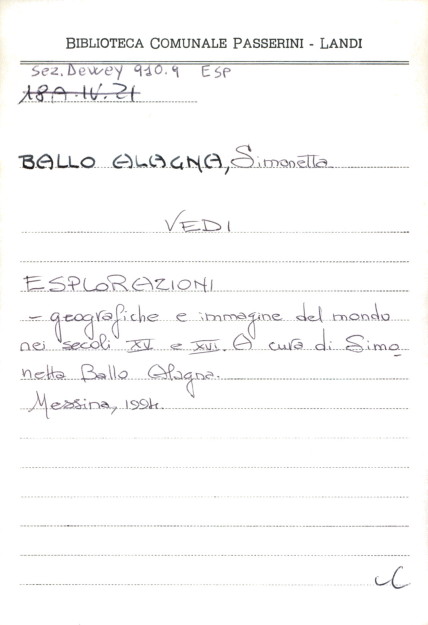 BIBLIOTECA COMUNALE PASSERINI - LANDI
Sez. Dewey 910.9 ESP
18A.IV.21
BALLO ALAGNA, Simonetta
VEDI
ESPLORAZIONI
- geografiche e immagine del mondo
nei secoli XV e XVI. A cura di Simo
netta Ballo Alagna.
Messina, 1994.